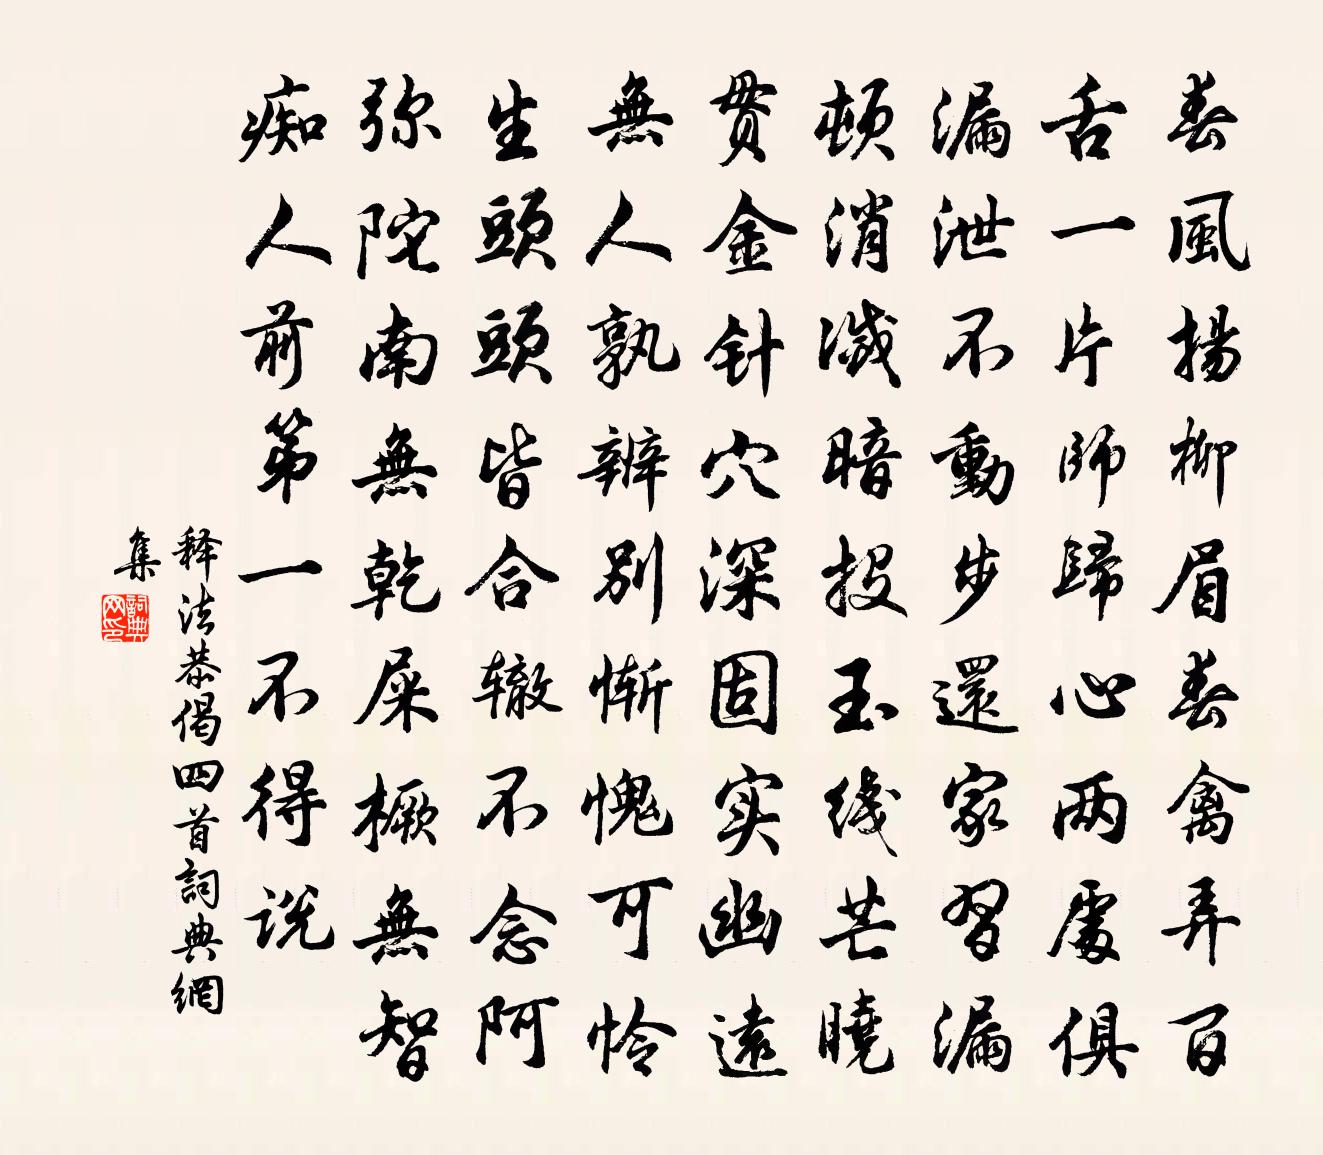 春風揚柳眉春禽弄百
舌一片師歸心两處俱
漏泄不動步還家習漏
頓消滅暗投玉綫芒曉
贯金针穴深固实幽遠
無人孰辨别惭愧可怜
生頭頭皆合辙不念阿
弥陀南無乾屎橛無智
痴人前第一不得说
释法恭偈四首詞典網
集
詞典网印